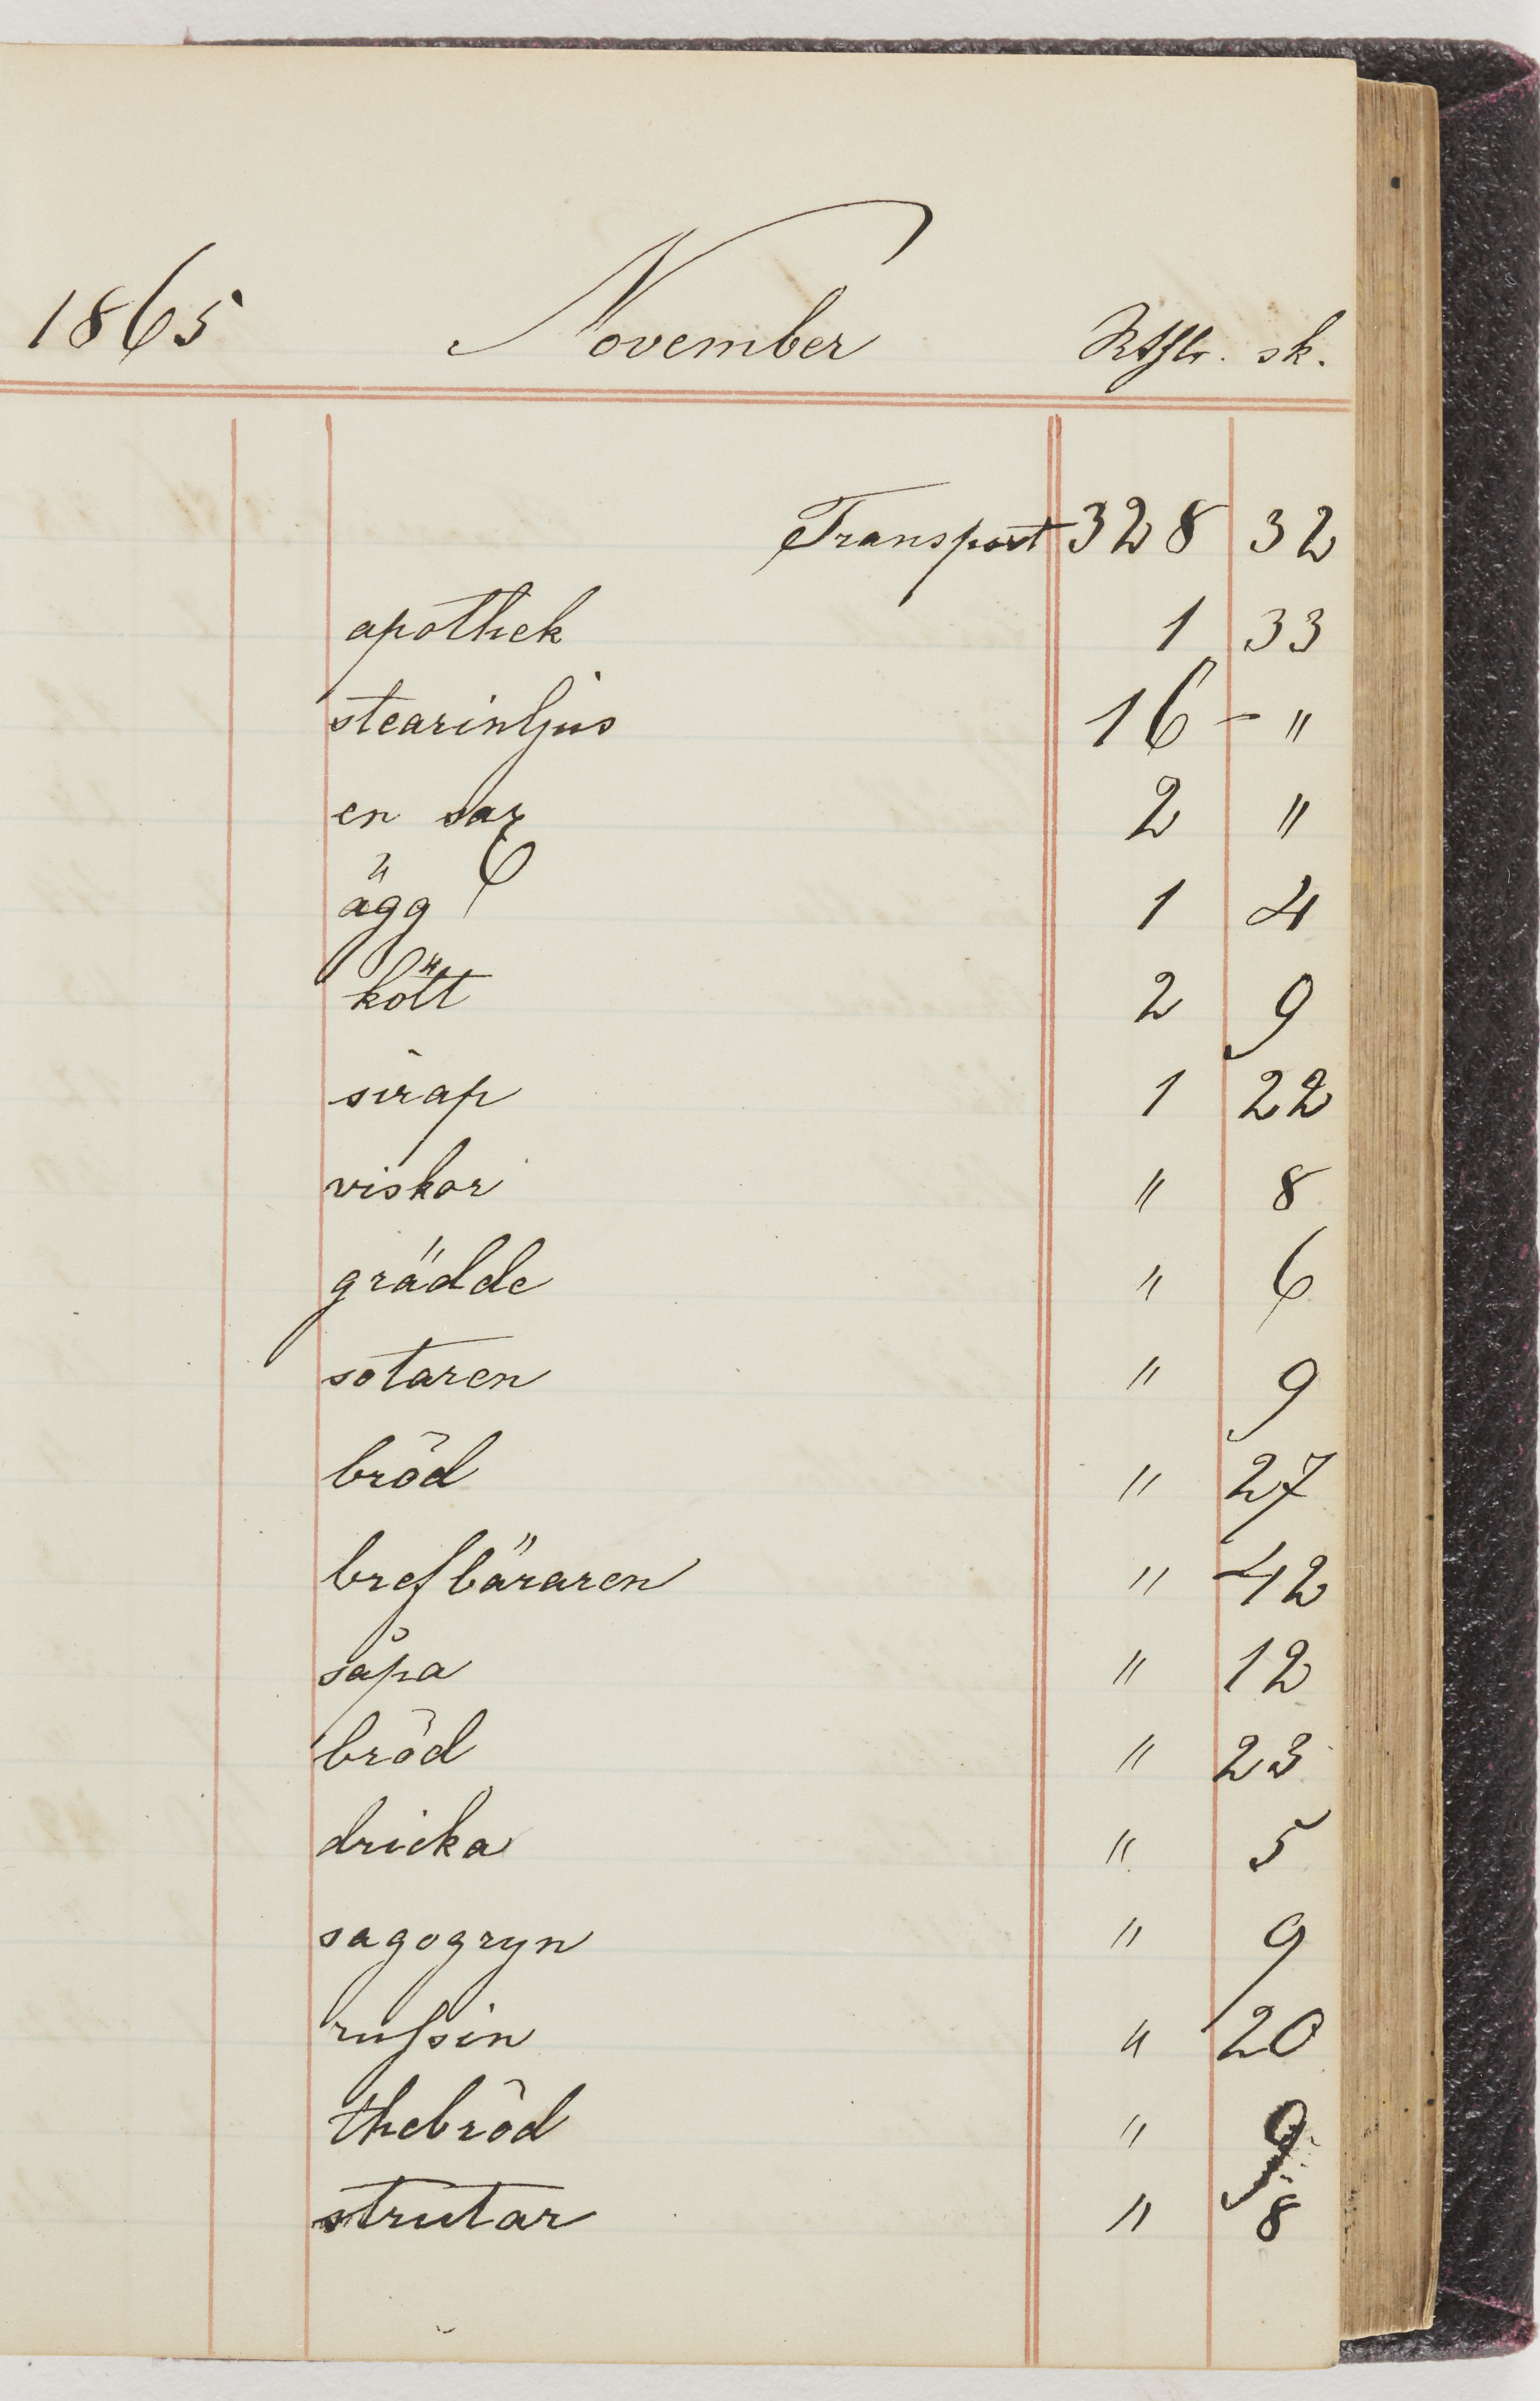 1865 November Rthlr. sk.
Transport 328 32
apothek 1 33
stearinljus 16 - "
en sax 2 "
ägg 1 4
kött 2 9
sirap 1 22
viskor " 8
grädde " 6
sotaren " 9
bröd " 27
brefbäraren " 42
såpa " 12
bröd " 23
dricka " 5
sagogryn " 9
russin " 20
thebröd " 9
strutar " 8